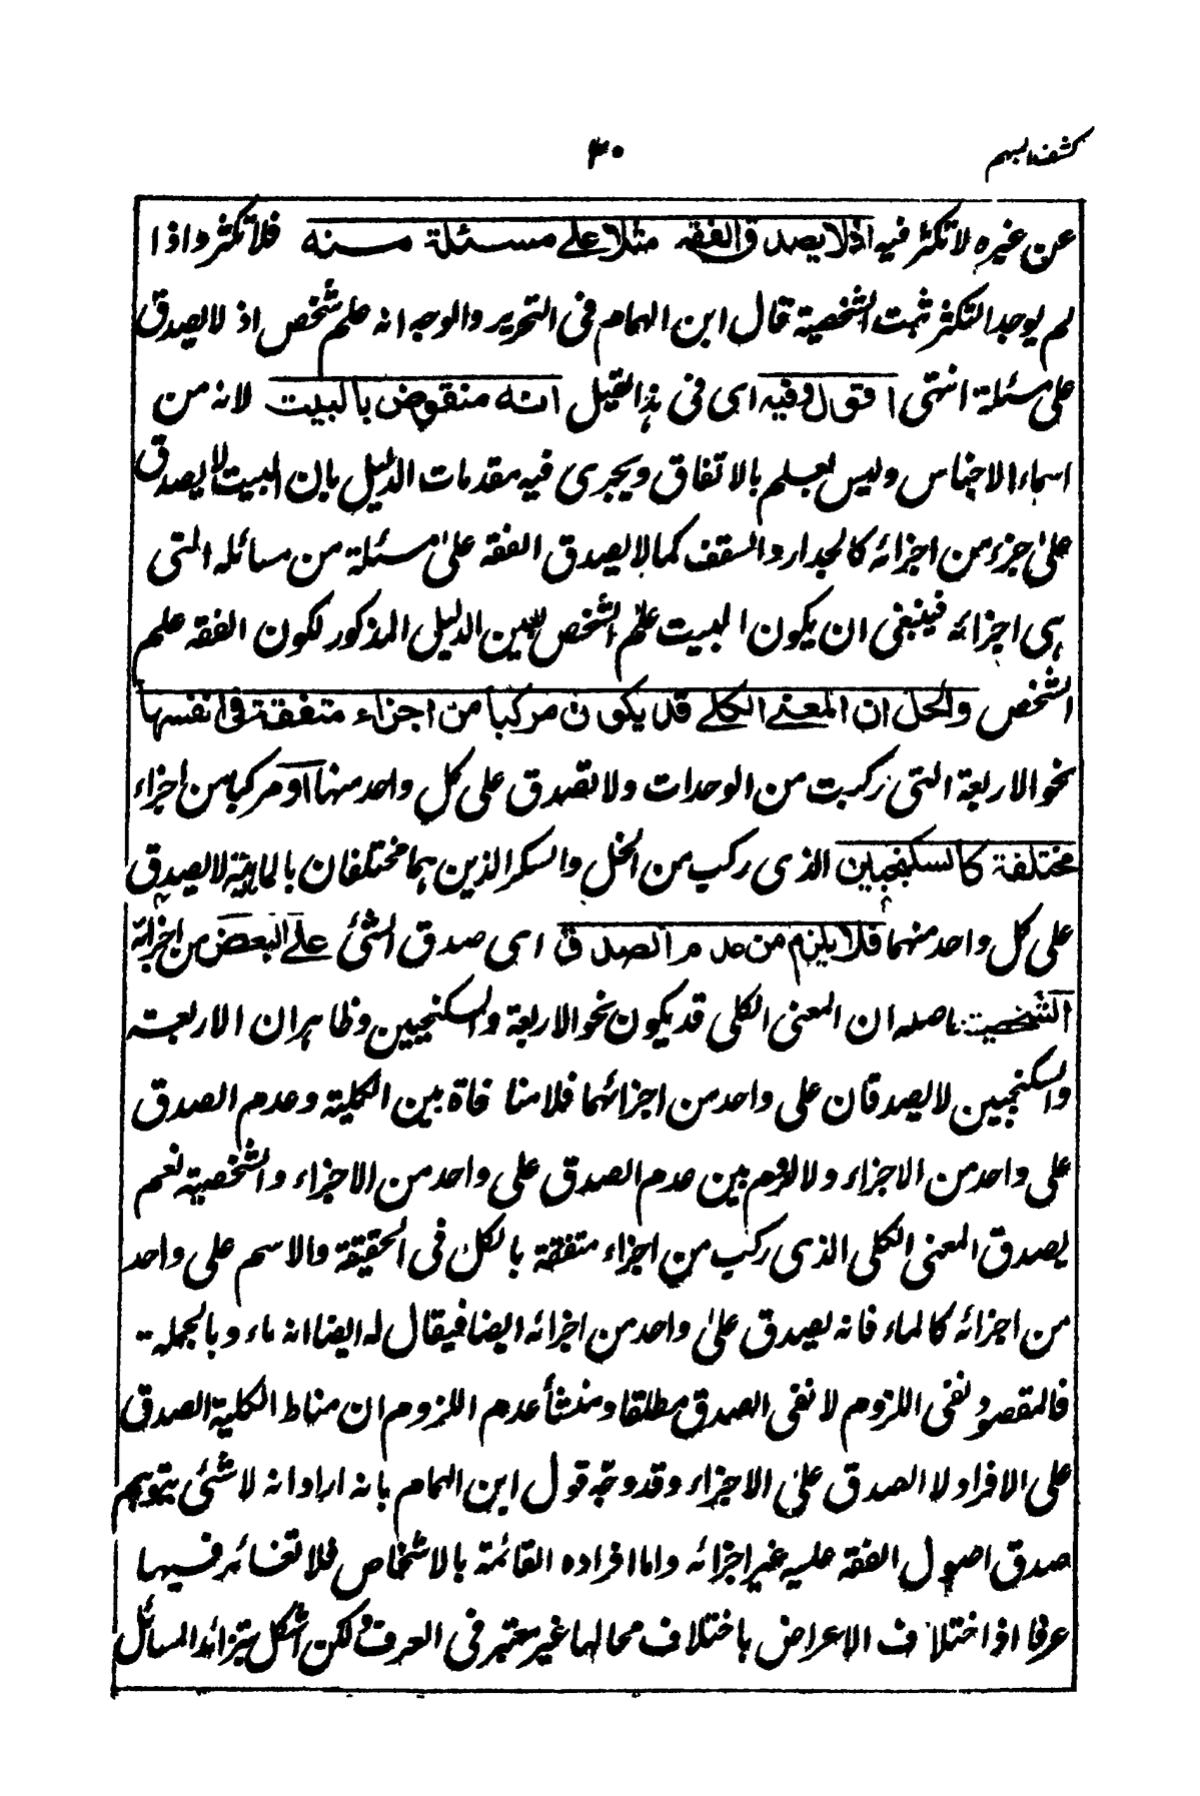 كشف المبهم
٣٠
عن غيره لا تكثر فيه اذ لا يصدق الفقه مثلا على مسئلة مسئلة فلا تكثر واذا
لم يوجد التكثر ثبت الشخصية قال ابن الهمام فى التحرير والوجه انه علم شخص اذ لا يصدق
على مسئلة انتهى اقول وفيه اى فى هذا القيل انه منقوض بالبيت لانه من
اسماء الاجناس وليس بعلم بالاتفاق ويجرى فيه مقدمات الدليل بان البيت لا يصدق
على جزء من اجزائه كالجدار والسقف كما لا يصدق الفقه على مسئلة من مسائله التى
هى اجزائه فينبغى ان يكون البيت علم الشخص بعين الدليل المذكور لكون الفقه علم
الشخص والحل ان المعنى الكلى قد يكون مركبا من اجزاء متفقة فى انفسها
نحو الاربعة التى ركبت من الوحدات ولا تصدق على كل واحد منها او مركبا من اجزاء
مختلفة كالسكنجبين الذى ركب من الخل والسكر الذين هما مختلفان بالماهية لا يصدق
على كل واحد منهما فلا يلزم من عدم الصدق اى صدق الشئ على البعض من اجزائه
الشخصية حاصله ان المعنى الكلى قد يكون نحو الاربعة والسكنجبين وظاهر ان الاربعة
والسكنجبين لا يصدقان على واحد من اجزائهما فلا منافاة بين الكلية وعدم الصدق
على واحد من الاجزاء ولا لزوم بين عدم الصدق على واحد من الاجزاء والشخصية نعم
يصدق المعنى الكلى الذى ركب من اجزاء متفقة بالكل فى الحقيقة والاسم على واحد
من اجزائه كالماء فانه يصدق على واحد من اجزائه ايضا فيقال له ايضا انه ماء وبالجملة
فالمقصود نفى اللزوم لا نفى الصدق مطلقا ومنشأ عدم اللزوم ان مناط الكلية الصدق
على الافراد لا الصدق على الاجزاء وقد وجه قول ابن الهمام بانه اراد انه لا شئ يتوهم
صدق اصول الفقه عليه غير اجزائه واما افراده القائمة بالاشخاص فلا تغائر فيها
عرفا اذ اختلاف الاعراض باختلاف محالها غير معتبر فى العرف لكن اشكل بتزائد المسائل